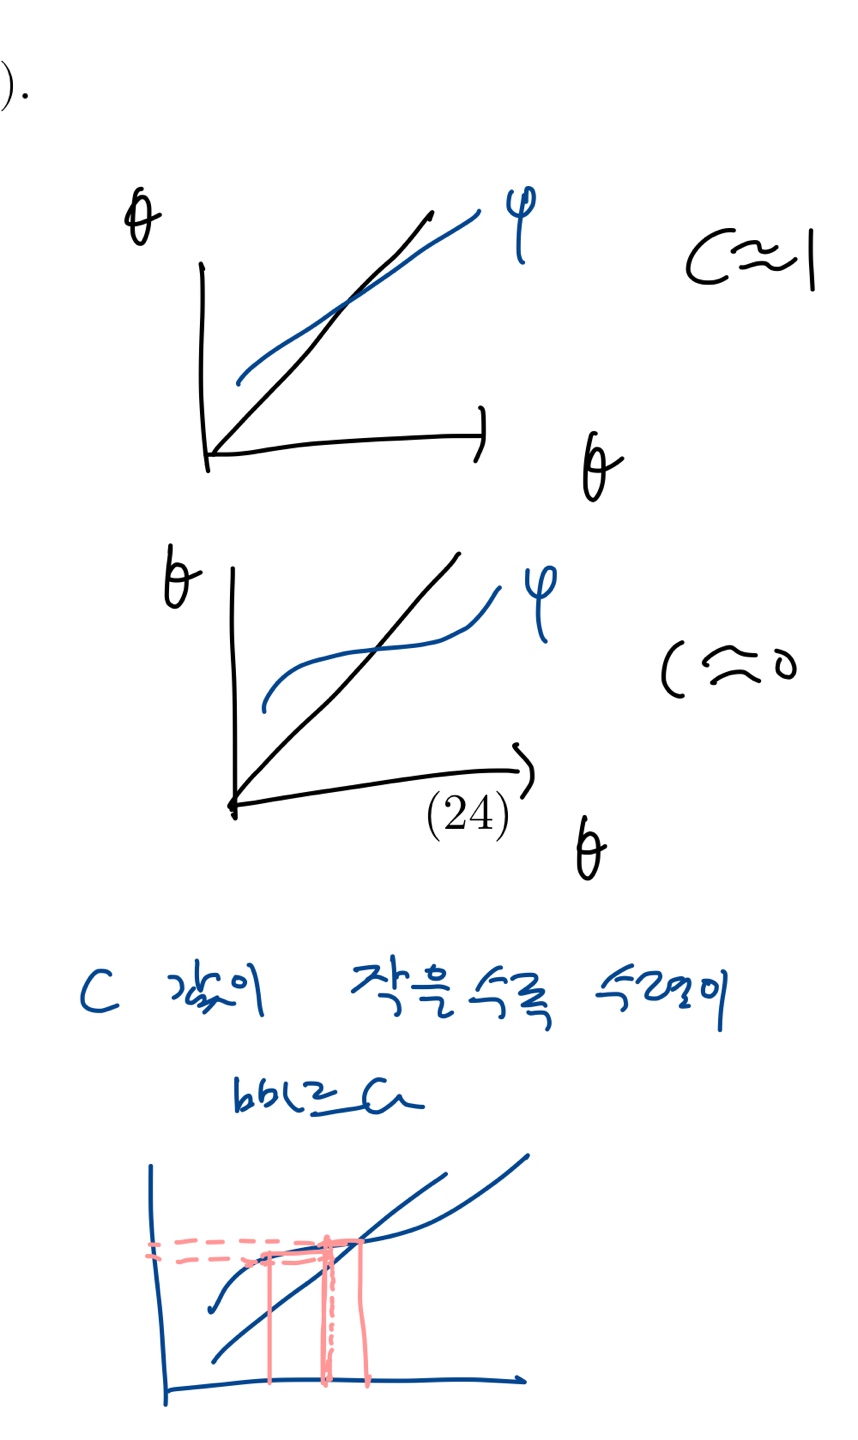 ).
θ φ C≈1
θ
θ φ C≈0
(24)
θ
C 값이 작을수록 수렴이
빠르다